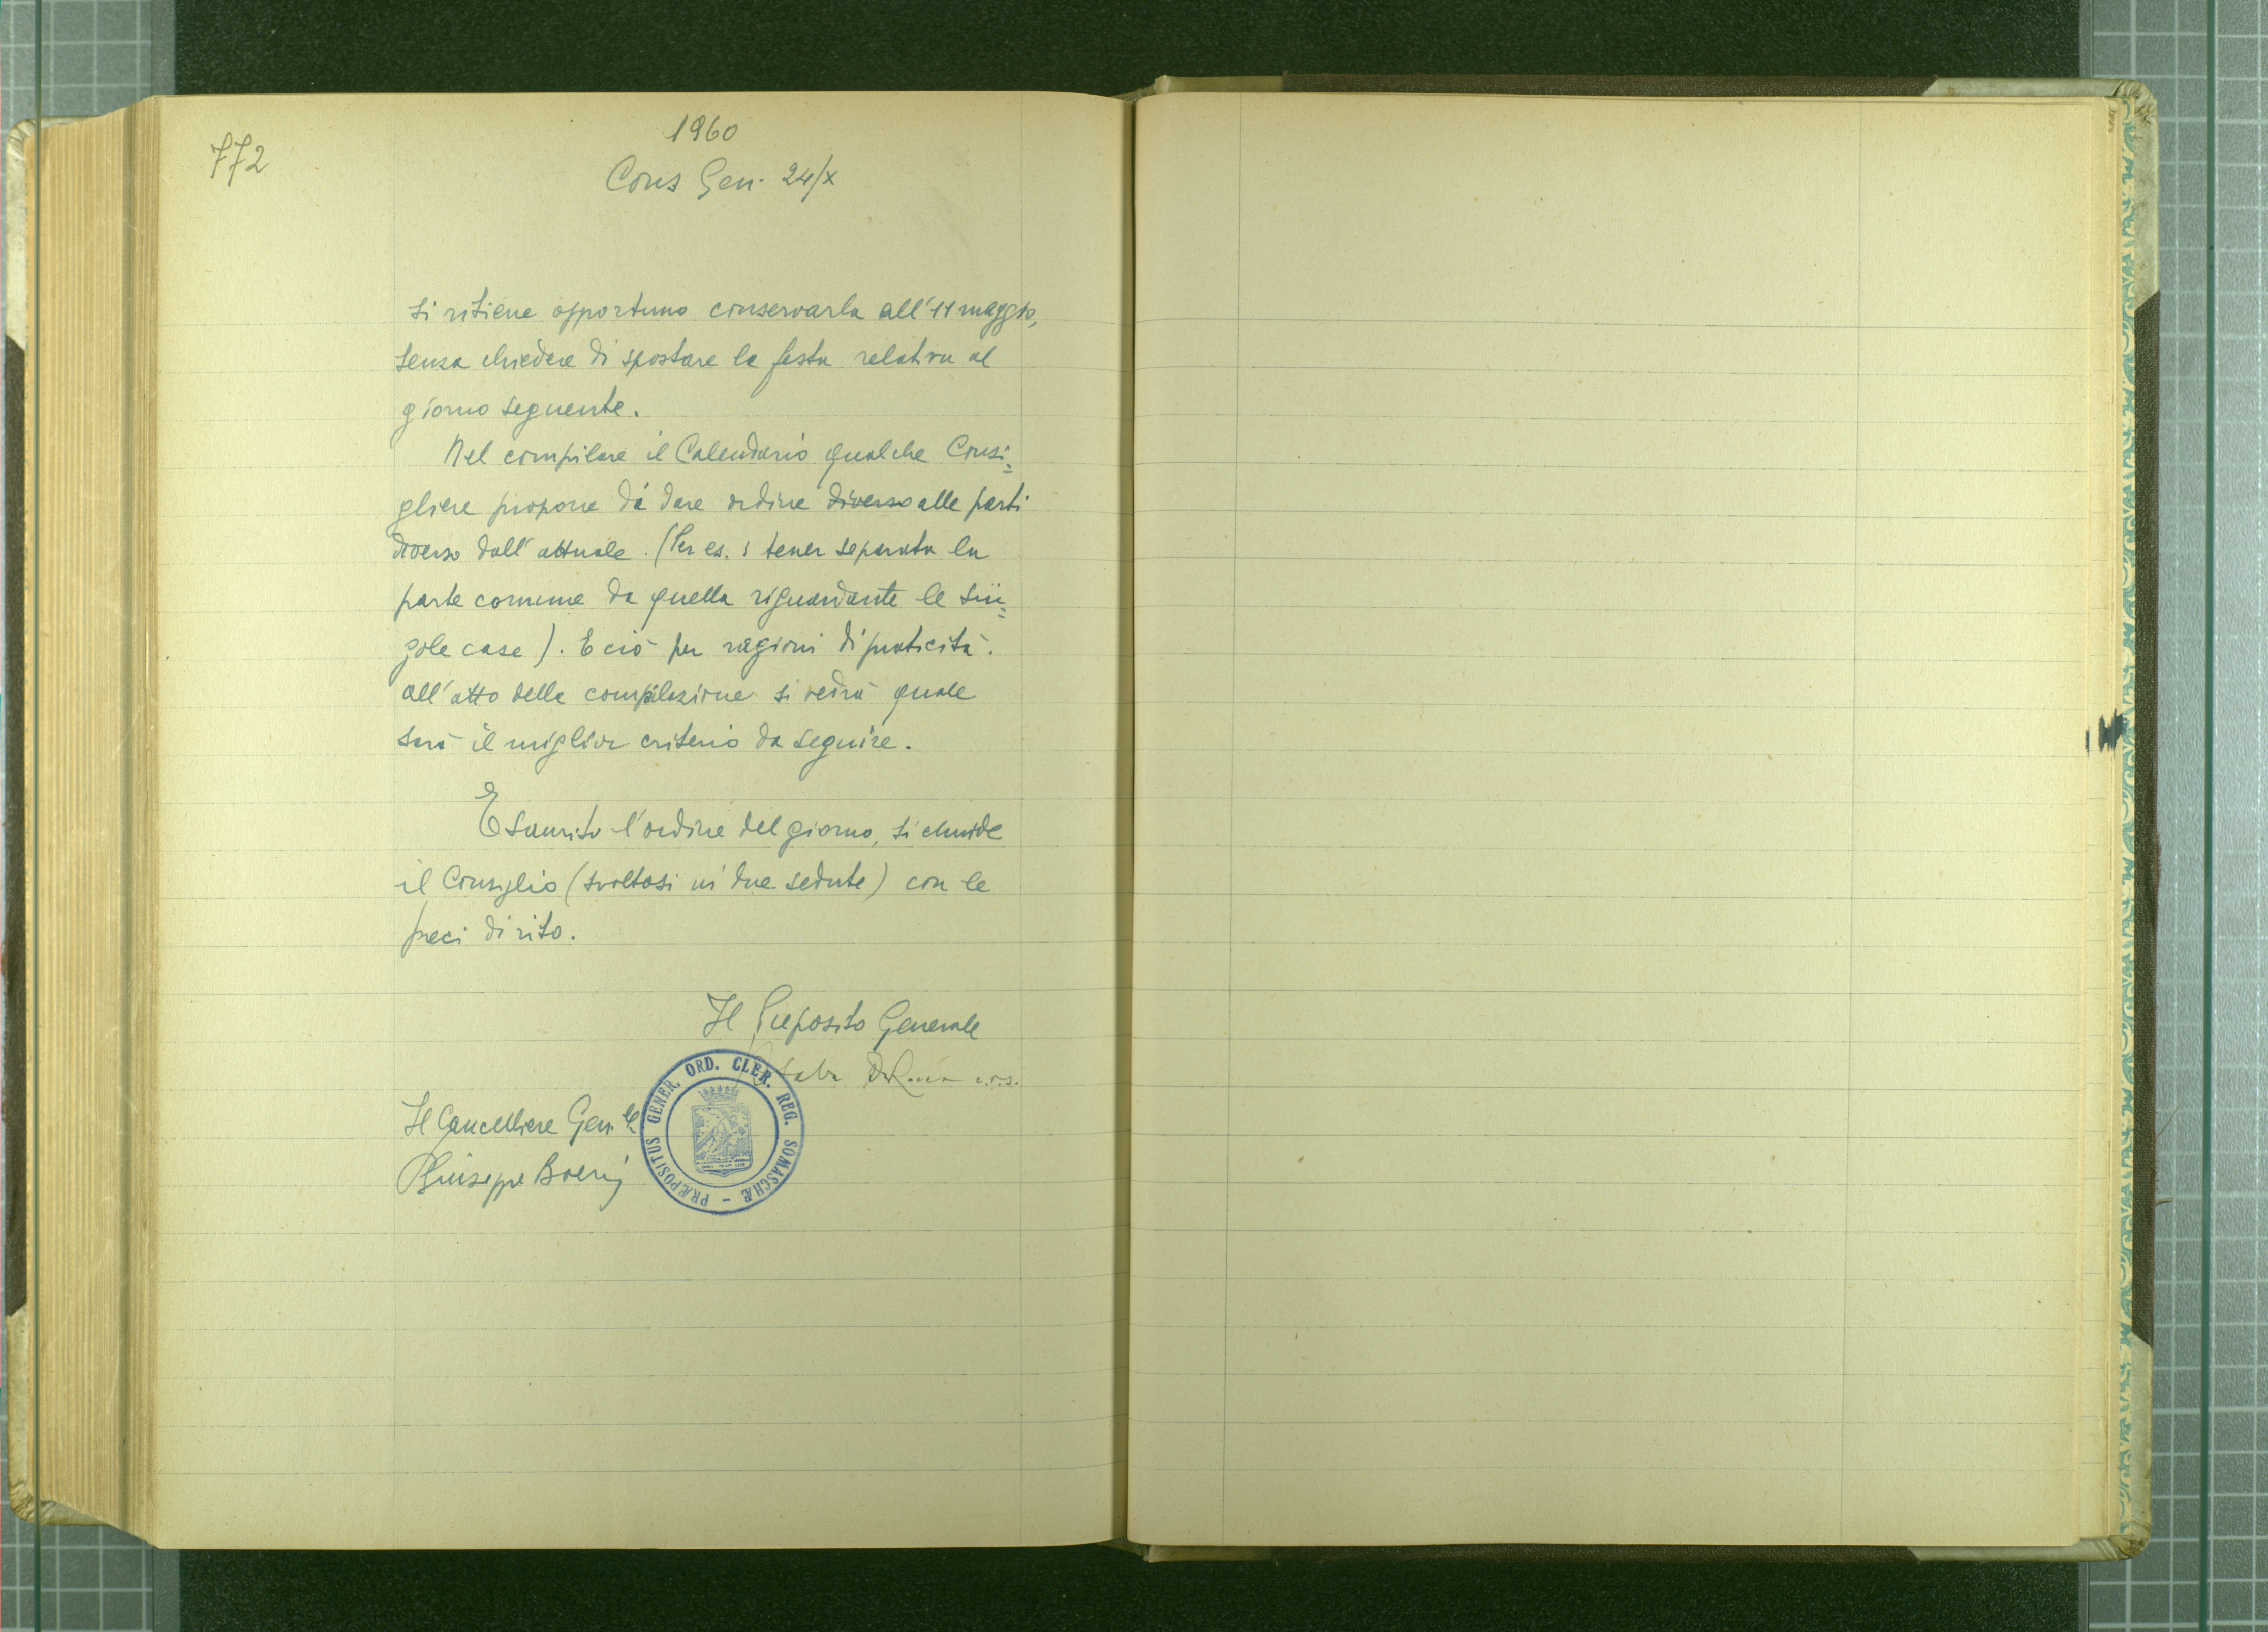 772
1960
Cons Gen. 24/X
si ritiene opportuno conservarla all'11 maggio,
senza chiedere di spostare la festa relativa al
giorno seguente.
Nel compilare il Calendario qualche Consi=
gliere propone di dare ordine diverso alle parti
diverso dall'attuale. (Per es.: tener separata la
parte comune da quella riguardante le sin=
gole case). E ciò per ragioni di praticità.
All'atto della compilazione si vedrà quale
sarà il miglior criterio da seguire.
Esaurito l'ordine del giorno, si chiude
il Consiglio (svoltosi in due sedute) con le
preci di rito.
Il Preposito Generale
c.r.s.
Il Cancelliere Gen.le
P Giuseppe Boeri
PRÆPOSITUS GENER. ORD. CLER. REG. SOMASCHÆ -